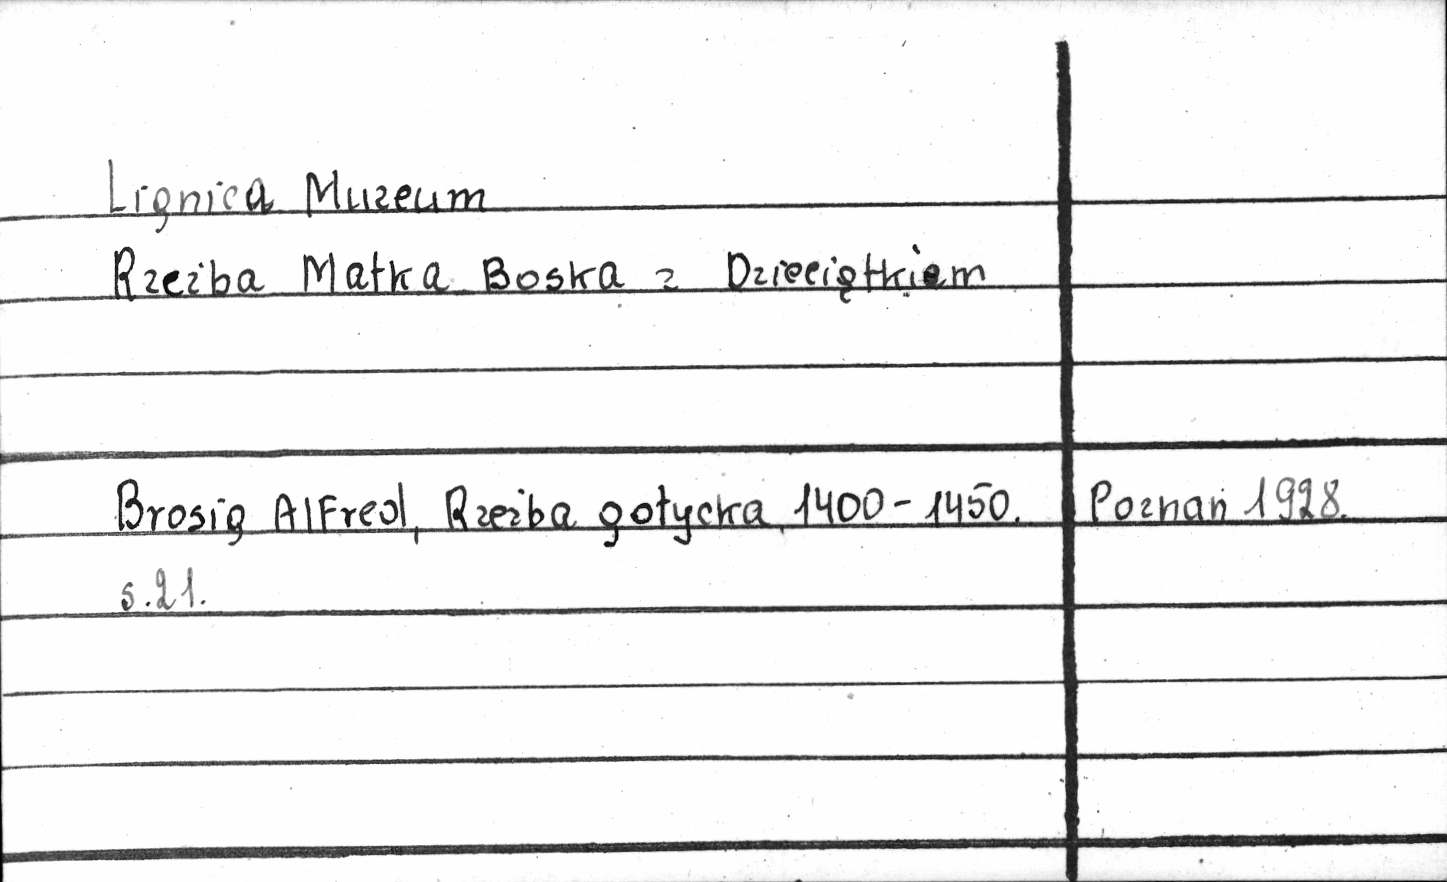 Lignica Muzeum
Rzeźba Matka Boska z Dzieciątkiem
Brosig Alfred, Rzeźba gotycka 1400-1450. Poznań 1928.
s.21.